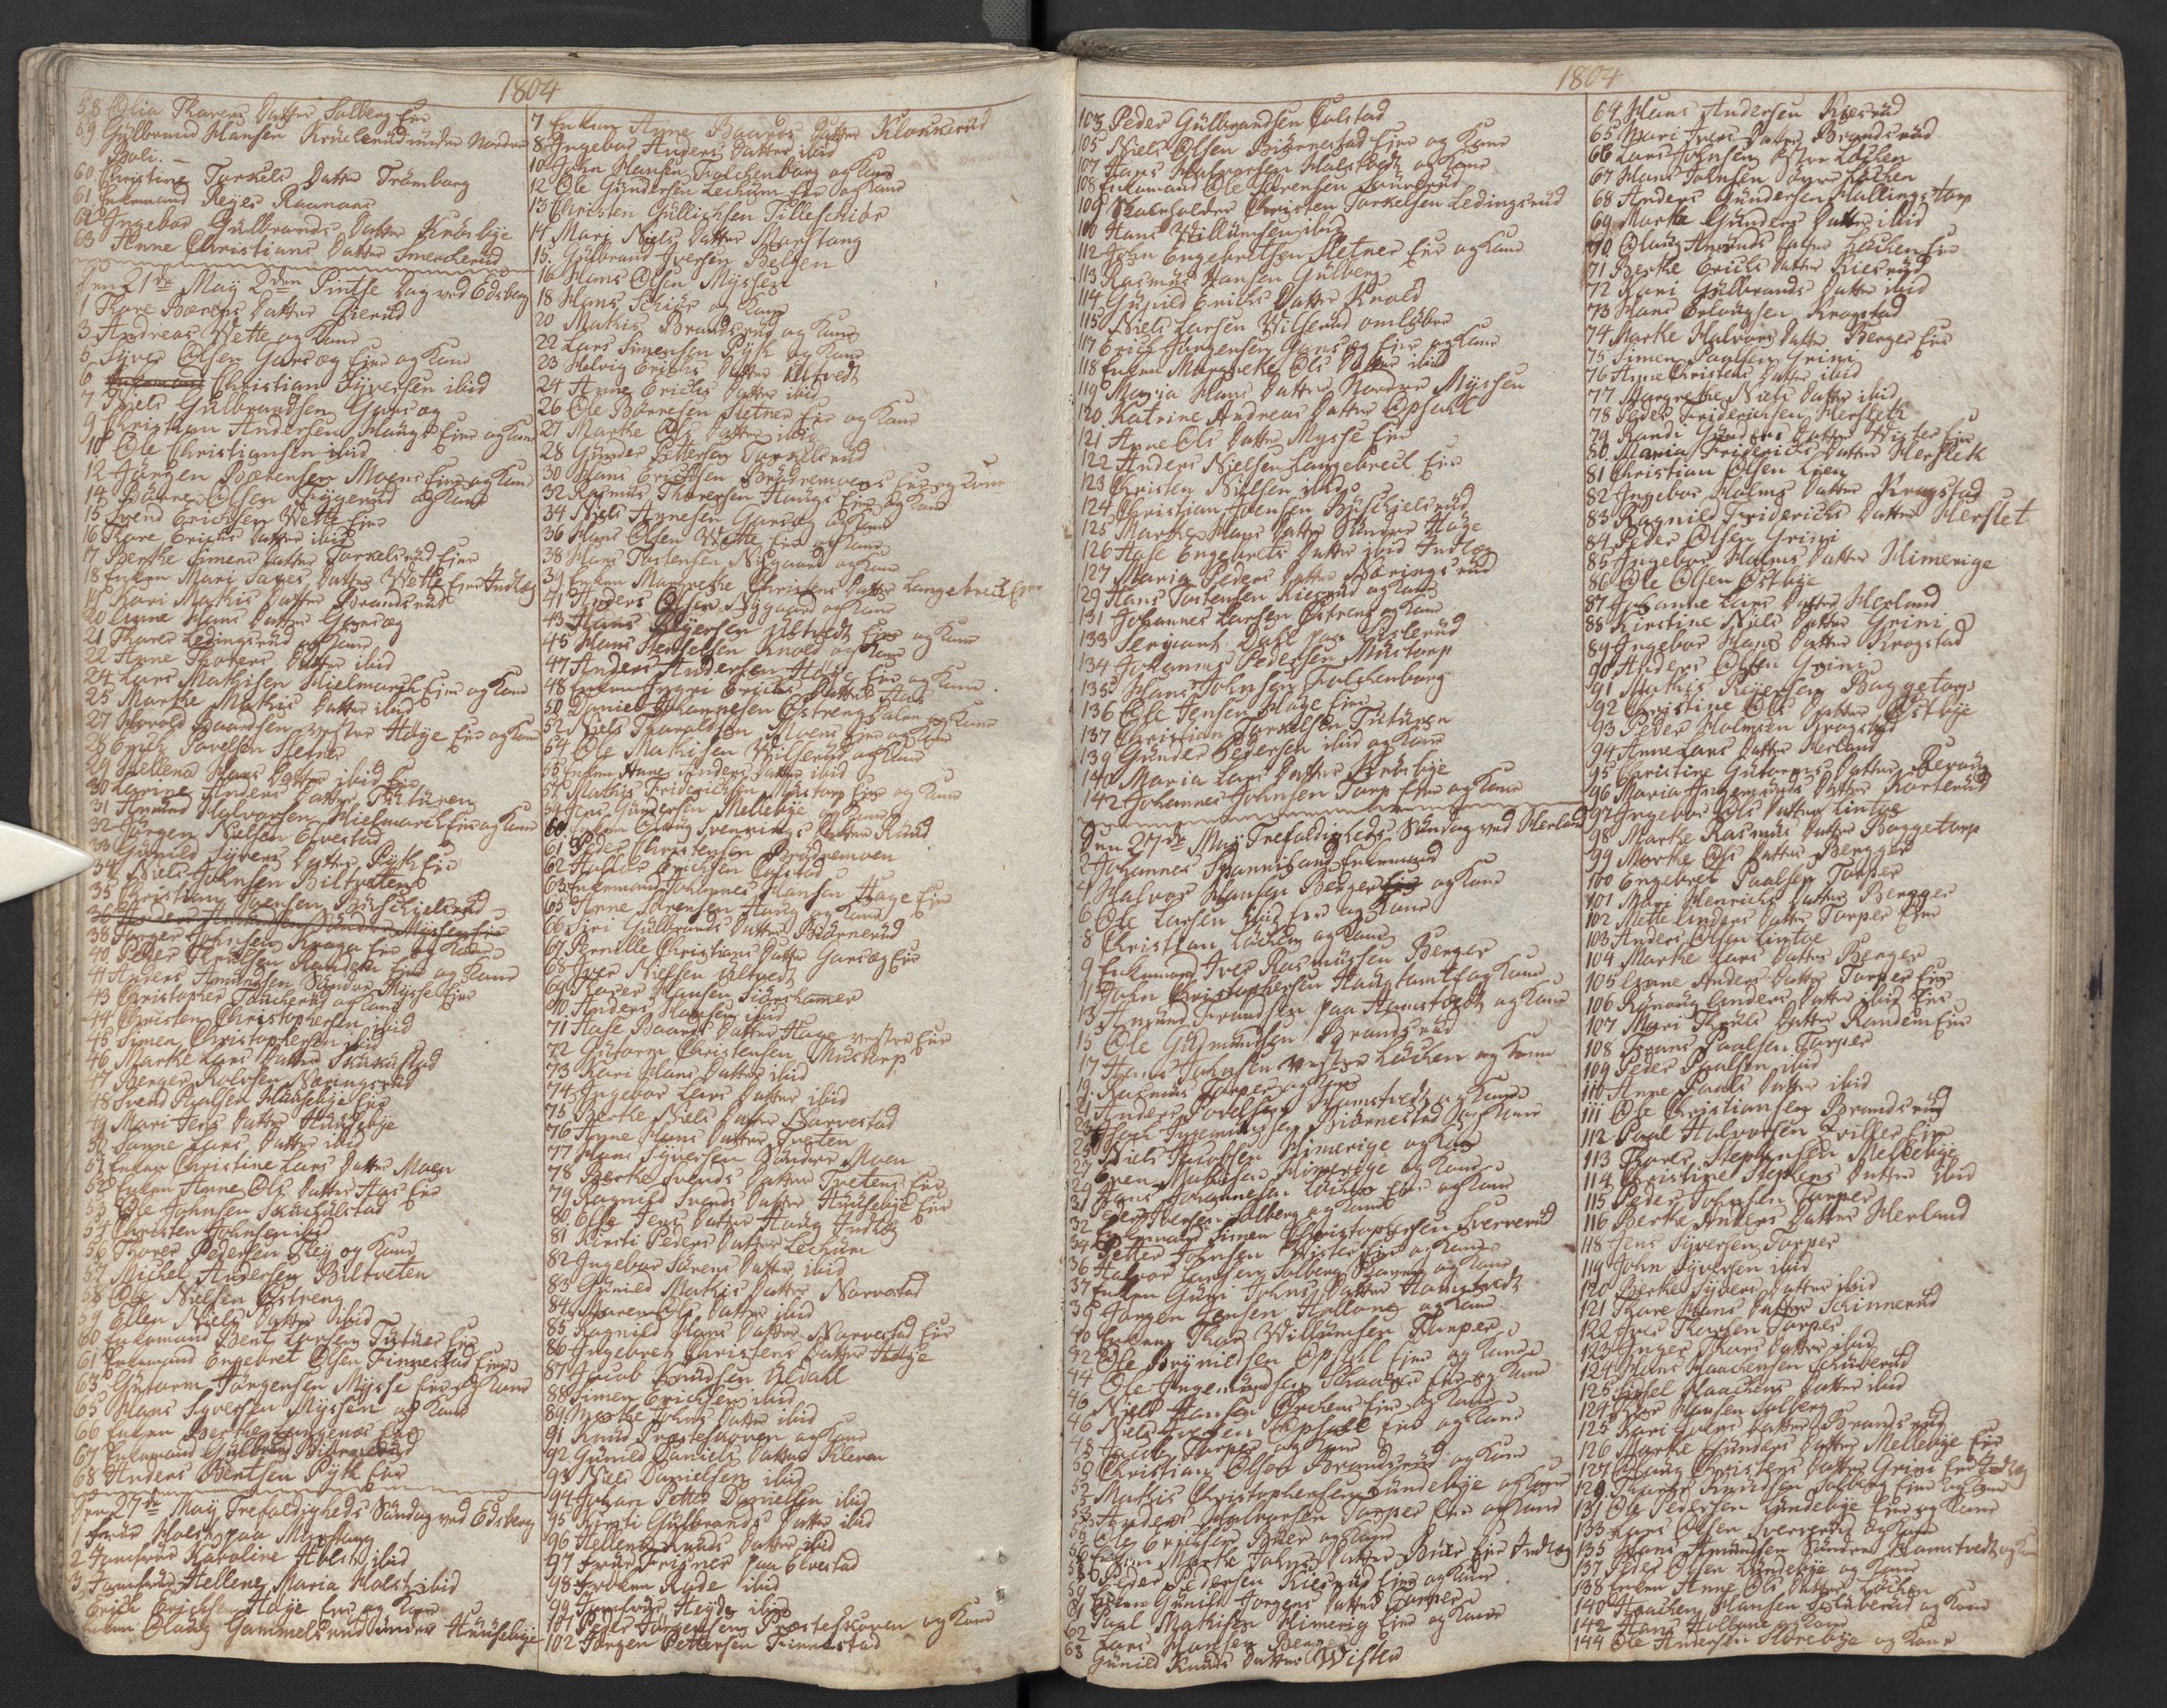 1804
58 Olia Thores Datter Solberg Eir
59 Gulbrand Hansen Krüclerud under Nordre
Boli.
60 Christine Torkels Datter Trömborg
61 Enkemand Rejer Raanaas
62 Ingebor Gulbrands Datter Kröseby
63 Anne Christians Datter Smerkerud
Den 21de May 2den Pintse Dag ved Edsberg
1 Thore Datter Gierud
3 Andreas Wette og Kone
5 Syver Olsen Garseg Eir og Kone
6 Christian Syversen ibid
7 Niels Gulbrandsen Garseg
9 Christian Andersen Haug Eir og Kone
10 Ole Christiansen ibid
12 Jörgen Moens Eir og Kone
14 Olsen og Kone
15 Svend Erichsen Wette Eir
16 Kare Erichs Datter ibid
17 Berthe Simens Datter Torkelsrud Eir
18 Enken Mari Datter Wette Eir Indleg
19 Kari Mathis Datter Brandsrud
20 Anne Hans Datter Garseg
21 Thores Ledingsrud og Kone
22 Anne Thores Datter ibid
24 Lars Mathisen Hielmark Eir og Kone
25 Marthe Mathis Datter ibid
27 Baardsen vestre Höije Eir og Kone
28 Erich Povelsen Sletner
29 Hellena Hans Datter ibid Eir
30 Karine Anders Datter Tuturen
31 Amund Halvorsen Hielmark Eir og Kone
32 Jörgen Nielsen Elvestad
33 Gunild Syvers Datter Pysk Eir
34 Niels Johnsen Biltvetten
35 Christian Joensen Buskielsrud
38 Torger Johnsen Krager Eir og Kone
40 Peder Randem Eir og Kone
41 Anders Amundsen Söndre Mysse Eir
43 Christopher og Kone
44 Christen Christophersen ibid
45 Simen Christophersen ibid
46 Marthe Lars Datter Skakulstad
47 Berger Næringsrud
48 Svend Paalsen Huusebye Eir
49 Mari Jens Datter Huusebye
50 Sanne Lars Datter ibid
51 Enken Christine Lars Datter Moen
52 Enken Anne Ols Datter Aas Eir
53 Ole Johnsen Skakulstad
54 Christen Johnsen ibid
56 Thorer Pedersen og Kone
57 Michel Andersen Biltveten
58 Ole Nielsen Östreng
59 Ellen Niels Datter ibid
60 Enkemand Bent Larsen Eir
61 Enkemand Engebret Olsen Finnestad Eir
63 Gutorm Jörgensen Mysse Eir og Kone
65 Hans Syversen Myssen og Kone
66 Enken Berthe
67 Enkemand Gulbrand Biörnerud
68 Anders Bentsen Pysk Eir
Den 27de May Trefoldigheds Söndag ved Edsberg
1 Frue Holst paa Morstang
2 Jomfrue Karoline Holst ibid
3 Jomfrue Hellene Maria Holst ibid
Erich Erichsen Höije Eir og Kone
Enken Olaug Gammelsrud under Huusebye
7 Enken Anne Baards Datter Klokkerud
8 Ingebor Anders Datter ibid
10 John Hansen Folckenborg og Kone
12 Ole Gundersen Lekum Eir og Kone
13 Christen Gullichsen Tilleskiör
14 Mari Niels Datter Morstang
15 Gulbrand Iversen Belgen
16 Hans Olsen Myssen
18 Hans og Kone
20 Mathis Brandsrud og Kone
22 Lars Simensen Pysk og Kone
23 Helvig Erichs Datter Ultvedt
24 Anne Erichs Datter ibid
26 Ole Börresen Sletner Eir og Kone
27 Marthe Ols Datter ibid
28 Gunder Pettersen Torkelsrud
30 Hans Erichsen Brödremoens Eir og Kone
32 Rasmus Thoresen Haugs Eir og Kone
34 Niels Arnesen Garseg og Kone
36 Hans Olsen Wette Eir og Kone
38 Hans Torstensen Nygaard og Kone
39 Enken Margrethe Christens Datter Langebreck Eir
41 Anders Olsen Nygaard og Kone
43 Hans Syversen Ultvedt Eir og Kone
45 Hans Knold og Kone
47 Anders Andersen Höije Eir og Kone
48 Enken Ingri Erichs Datter Aas
50 Daniel Johannesen Östreng og Kone
52 Niels Tharaldsen Moens Eir og Kone
54 Ole Mathisen Wilserud og Kone
55 Enken Anne Anders Datter ibid
57 Mathis Friderichsen Mustorp Eir og Kone
59 Jens Gundersen Mellebye og Kone
60 Enken Olaug Svennings Datter Ruud
61 Peder Christensen Brödremoen
62 Halvor Erichsen Colstad
63 Enkemand Johannes Hansen Hage Eir
65 Arne Sörensen Haug og Kone
66 Siri Gulbrands Datter Biörnerud
67 Pernille Christians Datter Garseg Eir
68 Iver Nielsen Ultvedt
69 Hansen Siöeskamer
70 Anders Hansen ibid
71 Aase Baards Datter Hage vestre Eir
72 Gutorm Christensen Mustorp
73 Kari Hans Datter ibid
74 Ingebor Lars Datter ibid
75 Berthe Niels Datter Narvestad
76 Anne Hans Datter Tveten
77 Hans Syversen Söndre Moen
78 Berthe Svends Datter Tvetens Eir
79 Ragnild Svends Datter Huusebye Eir
80 Else Jens Datter Haug Indleg
81 Kirsti Peders Datter Lekum
82 Ingebor Sörens Datter ibid
83 Gunild Mathis Datter Narvestad
84 Maren Ols Datter ibid
85 Ragnild Hans Datter Narvestad Eir
86 Ingebret Christens Datter Höije
87 Jacob Knudsen Uldahl
88 Simen Erichsen ibid
89 Marthe Johns Datter ibid
91 Knud Præsteskoven og Kone
92 Gunild Daniels Datter Kleven
93 Niels Danielsen ibid
94 Johan Petter Danielsen ibid
95 Kirsti Gulbrands Datter ibid
96 Hellene Knuds Datter ibid
97 Frue Treyner paa Elvestad
98 Fröken Rode ibid
99 Jomfrue Heyde ibid
101 Peder Jörgensen Præsteskoven og Kone
102 Jörgen Pettersen Finnestad
1804
103 Peder Gulbrandsen Colstad
105 Niels Olsen Biörnestad Eir og Kone
107 Hans Halvorsen Halstvedt og Kone
108 Enkemand Ole Sörensen
109 Skoeholder Christen Torkelsen Ledingsrud
110 Hans Willumsen ibid
112 John Engebretsen Sletner Eir og Kone
113 Rasmus Hansen Gulberg
114 Gunild Erichs Datter Knold
115 Niels Larsen Wilserud omlöber
117 Erich Jörgensen Garseg Eir og Kone
118 Enken Margrethe Ols Datter ibid
119 Maria Hans Datter Nordre Myssen
120 Katrine Andreas Datter Opsahl
121 Anne Ols Datter Mysse Eir
122 Anders Nielsen Langebreck Eir
123 Christen Nielsen ibid
124 Christian Joensen Buskielsrud
125 Marthe Hans Datter Söndre Hage
126 Aase Engebrets Datter ibid Indleg
127 Maria Peders Datter Næringsrud
129 Hans Torstensen Kiesrud og Kone
131 Johannes Larsen Östreng og Kone
133 Serjiant Dahl paa
134 Johannes Pedersen Mustorp
135 Hans Johnsen Folckenborg
136 Ole Jensen Hage Eir
137 Christian Torkelsen Tuturen
139 Gunder Pedersen ibid og Kone
140 Maria Lars Datter Krösbye
142 Johannes Johnsen Torp Eir og Kone
Den 27de May Trefoldigheds Söndag ved Herland
2 Johannes Spannisand Enkemand
4 Halvor Hansen Berger og Kone
6 Ole Larsen ibid Eir og Kone
8 Christian Löchen og Kone
9 Enkemand Iver Rasmussen Berger
11 John Christophersen Haugtomt og Kone
13 Amund paa Hamstvedt og Kone
15 Ole Gudmundsen Brandsrud
17 Hans Johnsen vestre Löchen og Kone
19 Rasmus Torper og Kone
21 Anders Povelsen Hamstvedt og Kone
23 Ingemundsen Biörnestad og Kone
25 Niels Jacobsen Himerige og Kone
27 Even Mathisen Himerige og Kone
29 Hans Johannesen Löchen Eir og Kone
31 Iversen Solberg og Kone
32 Enkemand Simen Christophersen Sververud
34 Petter Johnsen Wister Eir og Kone
36 Halvor Solberg og Kone
37 Enken Guri Johns Datter Hamstvedt
39 Jörgen Jensen Hollane og Kone
40 Enken Thor Willumsen Torper
42 Ole Brynildsen Opsahl Eir og Kone
44 Ole Ingemundsen Eir og Kone
46 Niels Hansen Eir og Kone
46 Niels Iversen Opsahl Eir og Kone
48 Jacob Torper og Kone
50 Christian Olsen Brandsrud og Kone
52 Mathis Christophersen Lundebye og Kone
Anders Halvorsen Torper Eir og Kone
Ole Erichsen Buer og Kone
Enken Marthe Johns Datter Buer Eir Indleg
58 Peder Pedersen Kiesrud Eir og Kone
59 Enken Gunild Jörgens Datter Torper
61 Paal Mathisen Himerig Eir og Kone
62 Lars Hansen Berger
63 Gunild Knuds Datter Wister
64 Hans Andersen Kiesrud
65 Mari Ivers Datter Brandsrud
66 Lars Johnsen östre Löchen
67 Hans Johnsen övre Löchen
68 Anders Gundersen Hallingstorp
69 Marthe Gunders Datter ibid
70 Olaug Amunds Datter Löchen Eir
71 Berthe Erichs Datter Kiesrud
72 Kari Gulbrands Datter ibid
73 Hans Erlougsen Krogstad
74 Marthe Halvors Datter Berger Eir
75 Simen Paalsen Grini
76 Anne Christens Datter ibid
77 Margrethe Niels Datter ibid
78 Peder Friderichsen Herslet
79 Randi Gunders Datter Wister Eir
80 Maria Friderichs Datter Herslet
81 Christian Olsen Lien
82 Ingebor Holms Datter Krogstad
83 Ragnild Friderichs Datter Herslet
84 Peder Olsen Grini
85 Ingebor Holms Datter Himerige
86 Ole Olsen Östbye
87 Johanne Lars Datter Herland
88 Kirstine Niels Datter Grini
89 Ingebor Hans Datter Krogstad
90 Anders Olsen Grini
91 Mathis Rejersen Baggetorp
92 Christine Ols Datter Östbye
93 Peder Holmsen Krogstad
94 Anne Lars Datter Herland
95 Christine Gutorms Datter Reroug
96 Maria Ingemunds Datter Korterud
97 Ingebor Ols Datter Lintoe
98 Marthe Rasmus Datter Baggetorp
99 Marthe Ols Datter Bergger
100 Engebret Paalsen Torper
101 Mari Henrichs Datter Bergger
102 Mette Anders Datter Torper Eir
103 Anders Olsen Lintoe
104 Marthe Lars Datter Berger
105 Anne Anders Datter Torper Eir
106 Rönnoug Anders Datter ibid Eir
107 Mari Truls Datter Randem Eir
108 Frans Paalsen Torper
109 Peder Paalsen ibid
110 Anne Paals Datter ibid
111 Ole Christiansen Brandsrud
112 Paal Halvorsen Eir
113 Thorer Stephensen Mellebye
114 Christine Stephens Datter ibid
115 Peder Johnsen Torper
116 Berthe Anders Datter Herland
118 Jens Syversen Torper
119 John Syversen ibid
120 Berthe Syvers Datter ibid
121 Thore Hans Datter Skinnerud
122 Iver Thorsen Torper
123 Inger Thors Datter ibid
124 Hans Haachensen Skuberud
125 Sissel Haachens Datter ibid
124 Hansen Solberg
125 Kari Ivers Datter Brandsrud
126 Marthe Gunders Datter Mellebye Eir
127 Olaug Christens Datter Grini Eir Indleg
129 Knudsen Solberg Eir og Kone
131 Ole Pedersen Lundebye Eir og Kone
133 Lars Olsen Sververud og Kone
135 Hans Amundsen Söndre Hamstvedt og Kone
137 Peder Olsen Lundebye og Kone
138 Enken Anne Ols Datter Löchen
140 Haachen Hansen Skuberud og Kone
142 Hans Hollane og Kone
144 Ole Andersen Slorebye og Kone